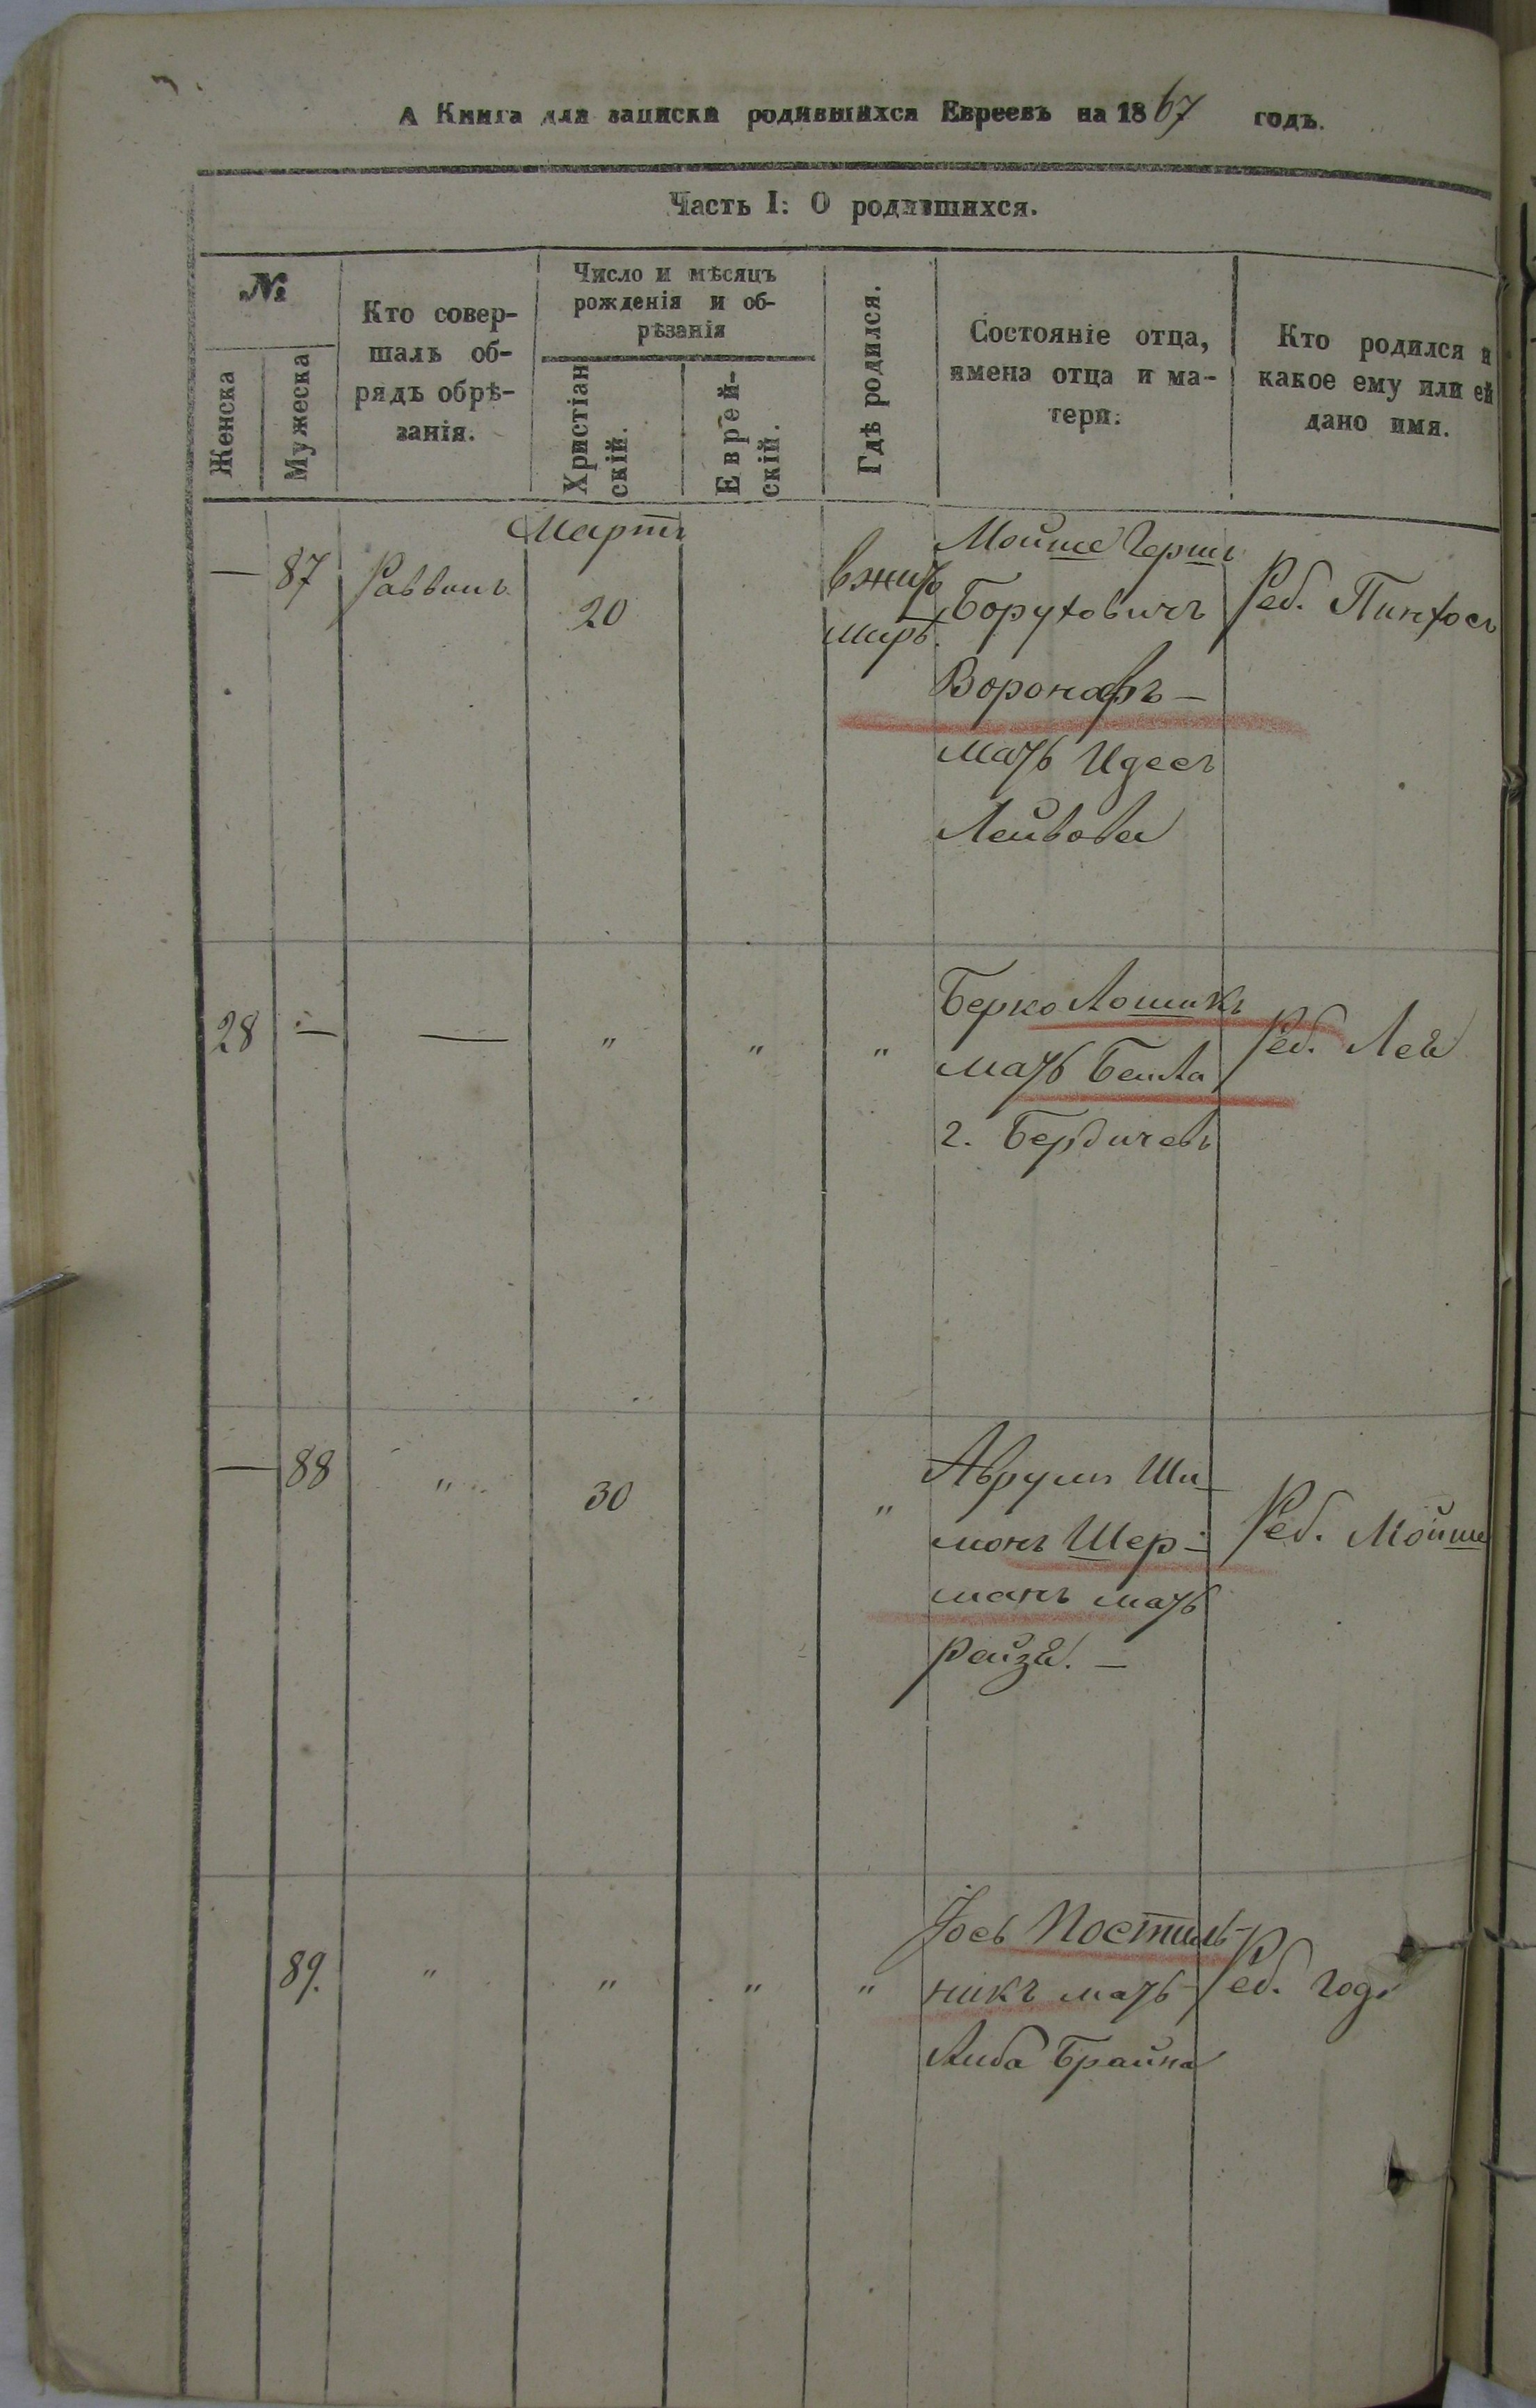 А Книга для записки родившихся Евреевъ на 1867 годъ.
Часть I: О родившихся.
№
Женска
Мужеска
Кто совер-
шалъ об-
рядъ обрѣ-
занія.
Число и мѣсяцъ
рожденія и об-
рѣзанія
Христіан
скій.
Еврей-
скій.
Гдѣ родился.
Состояніе отца,
имена отца и ма-
тери.
Кто родился и
какое ему или ей
дано имя.
Мартъ
— 87 Раввинъ 20
вжит
мирѣ.
Мойше Гершъ
Боруховичъ
—
мать Идесъ
Лейбова
Реб. Пинхосъ
28 — — " " "
Берко Лошакъ
мать Бейла
г. Бердичевъ
Реб. Лея
— 88 " 30 "
Аврумъ Ши-
монъ Шер-
манъ мать
Рейзя. —
Реб. Мойше
89. " " " "
Іось Постиль-
никъ мать
Либа Брайна
Реб. Годе